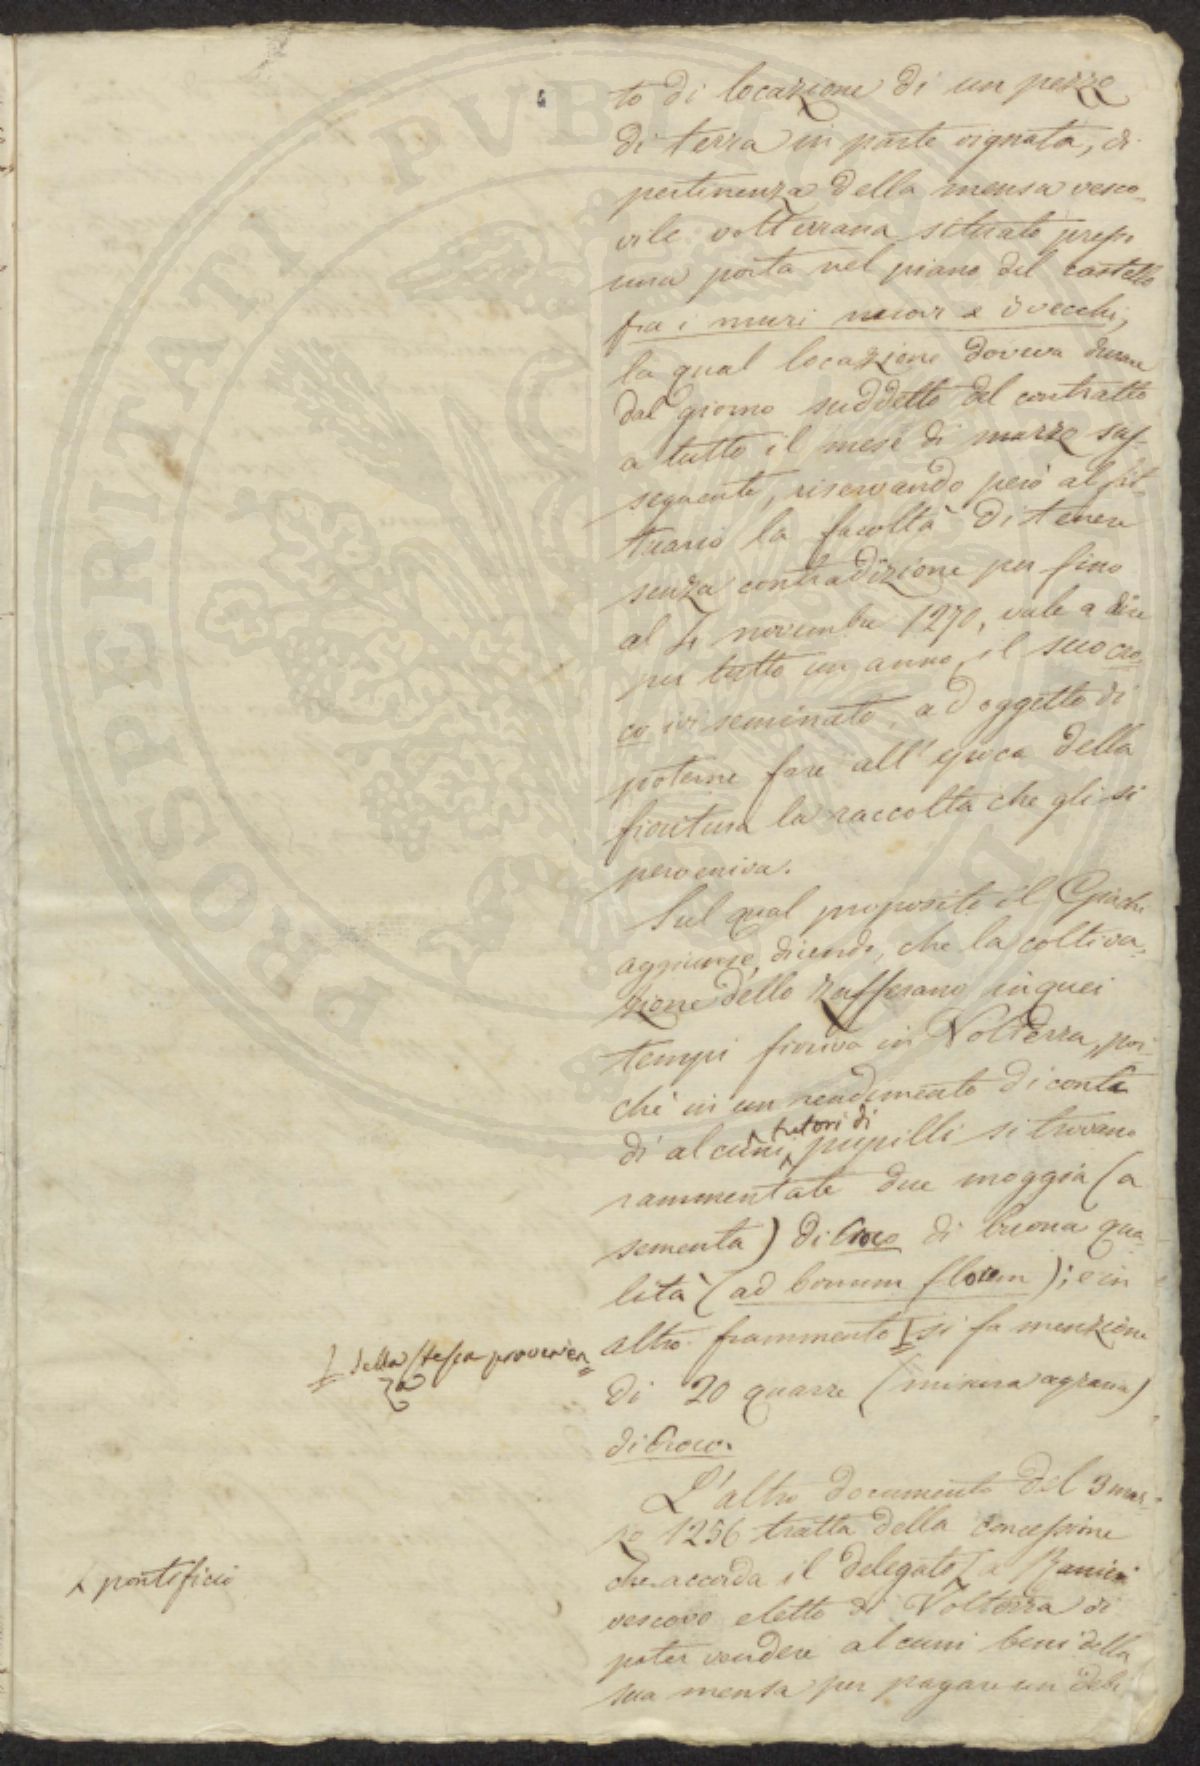 to di locazione di un pezzo
di terra in parte vignata, di
pertinenza della mensa vesco-
vile volterrana situato presso
una porta nel piano del castello
fra i muri nuovi e i vecchi,
la qual locazione doveva durare
dal giorno suddetto del contratto
a tutto il mese di marzo sus-
seguente, riservando però al fit-
tuario la facoltà di tenere
senza contradizione per fino
al 4 novembre 1270, vale a dire
per tutto un anno, il suo cro-
co ivi seminato, ad oggetto di
poterne fare all'epoca della
fioritura la raccolta che gli si
perveniva.
Sul qual proposito il Cinchi
aggiunse, dicendo, che la coltiva-
zione dello zafferano in quei
tempi fioriva in Volterra, poi-
chè in un rendimento di conti
di alcuni tutori di pupilli si trovano
rammentate due moggia (a
sementa) di Croco di buona qua-
lità (ad bonum florem); e in
altro frammento si fa menzione
della stessa provenien
za
di 20 quarre (misura agraria)
di Croco.
L'altro documento del 3 mar-
zo 1256 tratta della concessione
che accorda il delegato a Ranieri
pontificio
vescovo eletto di Volterra di
poter vendere alcuni beni della
sua mensa per pagare un debi
PROSPERITATI PVBLICAE